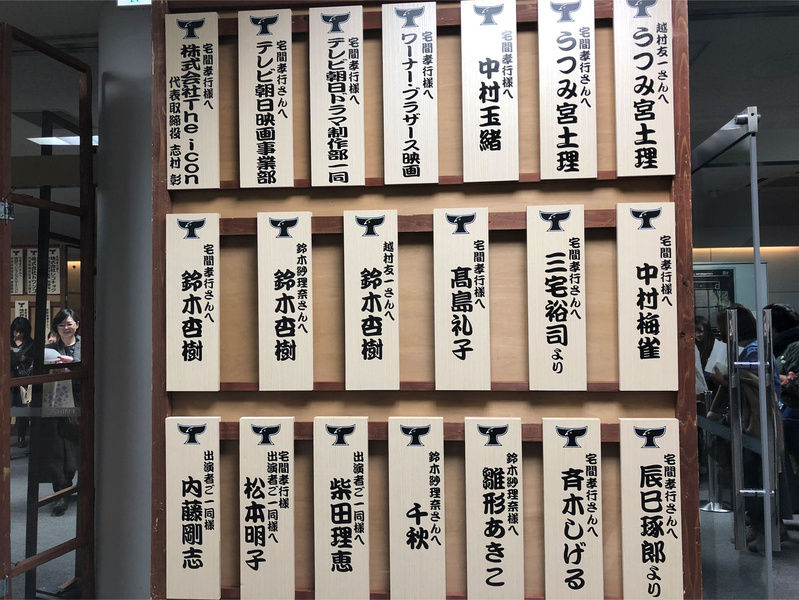 越村友一さんへ
うつみ宮土理
宅間孝行さんへ
うつみ宮土理
宅間孝行様へ
中村玉緒
宅間孝行様へ
ワーナー・ブラザース映画
宅間孝行様へ
テレビ朝日ドラマ制作部一同
宅間孝行さんへ
テレビ朝日映画事業部
宅間孝行様へ
株式会社The icon
代表取締役 志村 彰
宅間孝行様へ
中村梅雀
宅間孝行さんへ
三宅裕司より
宅間孝行様へ
髙島礼子
越村友一さんへ
鈴木杏樹
鈴木紗理奈さんへ
鈴木杏樹
宅間孝行さんへ
鈴木杏樹
宅間孝行さんへ
辰巳琢郎より
宅間孝行さんへ
斉木しげる
鈴木紗理奈様へ
雛形あきこ
鈴木紗理奈さんへ
千秋
出演者ご一同様へ
柴田理恵
宅間孝行様
出演者ご一同様へ
松本明子
出演者ご一同様
内藤剛志